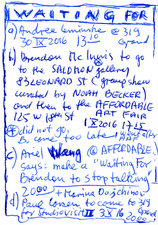 WAITING FOR
a) Andrea @ 319
30 IX 2016 13:10 Grand
b) Brendon Mc Innis to go
to the SALMON gallery
83 LEONARD ST (group show
curated by NOAH BECKER)
and then to the AFFORDABLE
125 W 18th St ART FAIR
1 X 2016 17:15
did not go,
B. come too late
c) Ariel Wang @ AFFORDABLE
says: make a "waiting for
Brendon to stop talking"
20:00 + Marina
d) Paul to come to 319
for studio visit 3 X 16